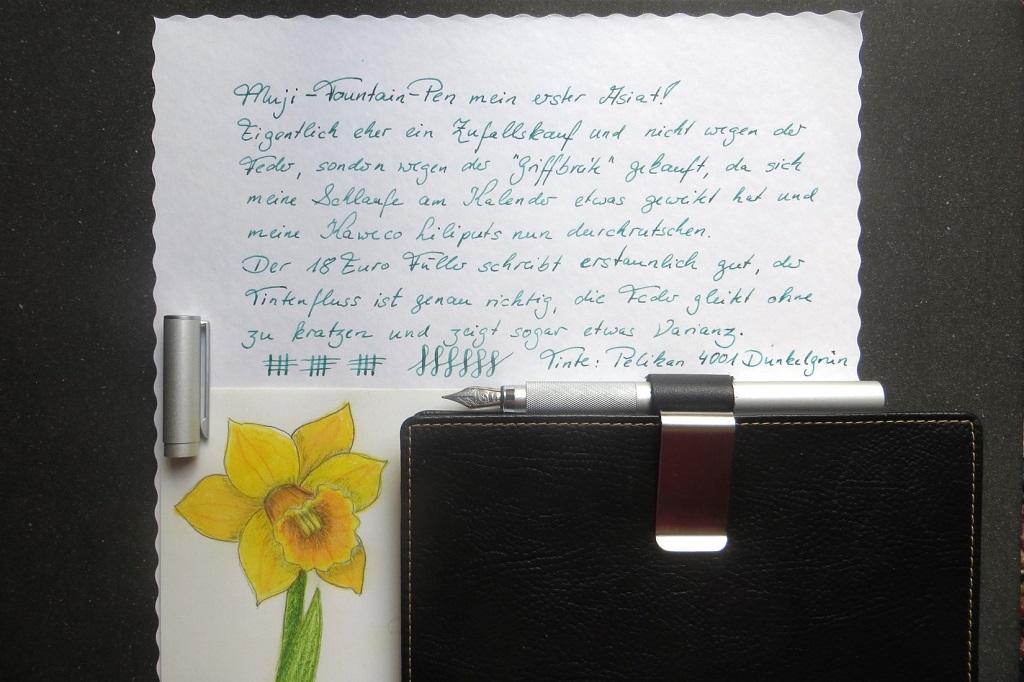 Muji-Fountain-Pen mein erster Asiat!
Eigentlich eher ein Zufallskauf und nicht wegen der
Feder, sondern wegen der "Griffbreite" gekauft, da sich
meine Schlaufe am Kalender etwas geweitet hat und
meine Kaweco Liliputs nun durchrutschen.
Der 18 Euro Füller schreibt erstaunlich gut, der
Tintenfluss ist genau richtig, die Feder gleitet ohne
zu kratzen und zeigt sogar etwas Varianz.
Tinte: Pelikan 4001 Dunkelgrün